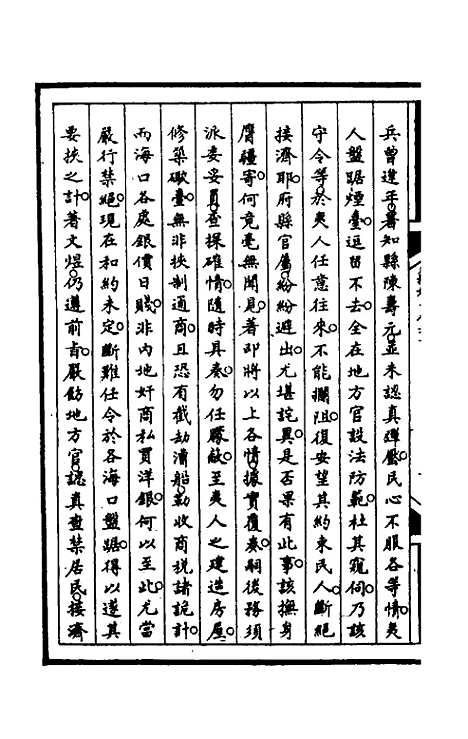 兵曾逢年。署知縣陳壽元。並未認真彈壓。民心不服各等情。夷
人盤踞煙臺。逗留不去。全在地方官設法防範。杜其窺伺。乃該
守令等。於夷人任意往來。不能攔阻。復安望其約束民人。斷絕
接濟耶。府縣官屬。紛紛避出。尤堪詫異。是否果有此事。該撫身
膺疆寄。何竟毫無聞見。著即將以上各情。據實覆奏。嗣後務須
派委妥員。查探確情。隨時具奏。勿任朦飾。至夷人之建造房屋。
修築礮臺。無非挾制通商。且恐有截劫漕船。勒收商稅諸詭計。
而海口各處銀價日賤。非內地奸商私買洋銀。何以至此。尤當
嚴行禁絕。現在和約未定。斷難任令於各海口盤踞。得以遂其
要挾之計。著文煜。仍遵前旨。嚴飭地方官。認真查禁居民。接濟